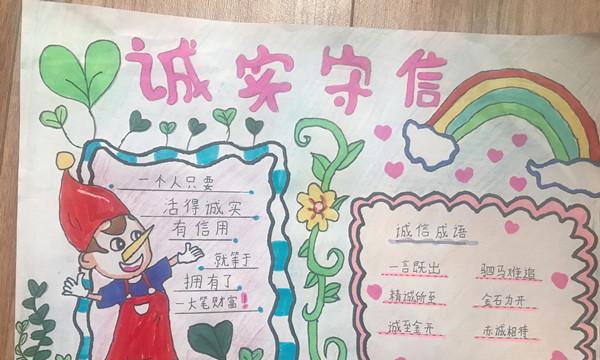 诚实守信
一个人只要
活得诚实
有信用
就等于
拥有了
一大笔财富!
诚信成语
一言既出 驷马难追
精诚所至 金石为开
诚至金开 赤诚相待